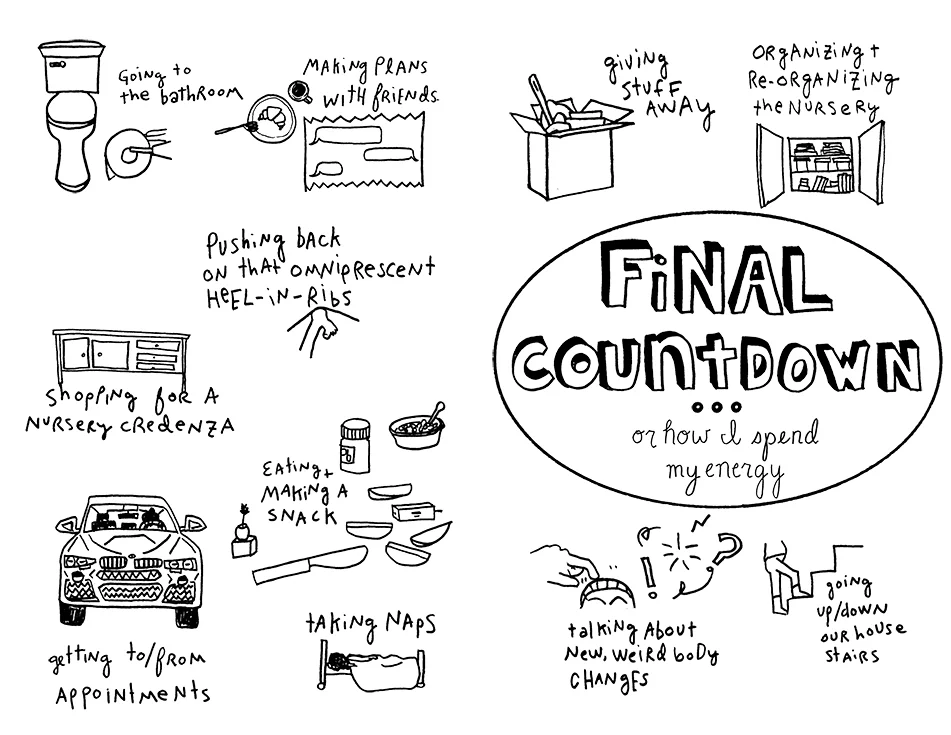 Going to
the bathroom
Making plans
with friends.
giving
stuff
away
Organizing +
Re-organizing
the nursery
Pushing back
on that omniprescent
heel-in-ribs
Final
Countdown
...
or how I spend
my energy
Shopping for a
nursery credenza
Eating +
making a
snack
Pb
getting to/from
appointments
taking naps
talking about
new, weird body
changes
going
up/down
our house
stairs